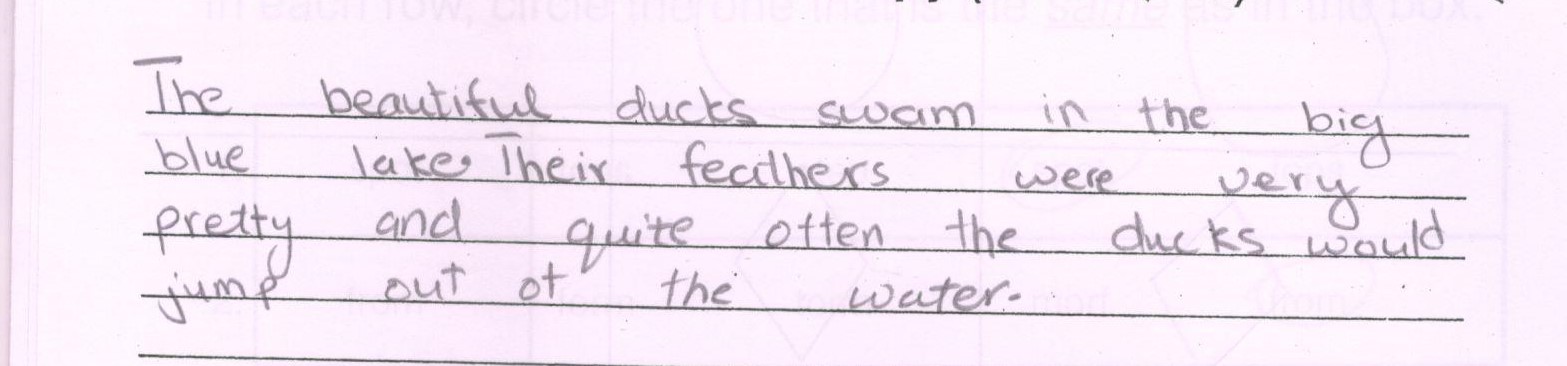 in each row, circle the one that is the same as in the box.
The beautiful ducks swam in the big
blue lake. Their feathers were very
pretty and quite often the ducks would
jump out of the water.